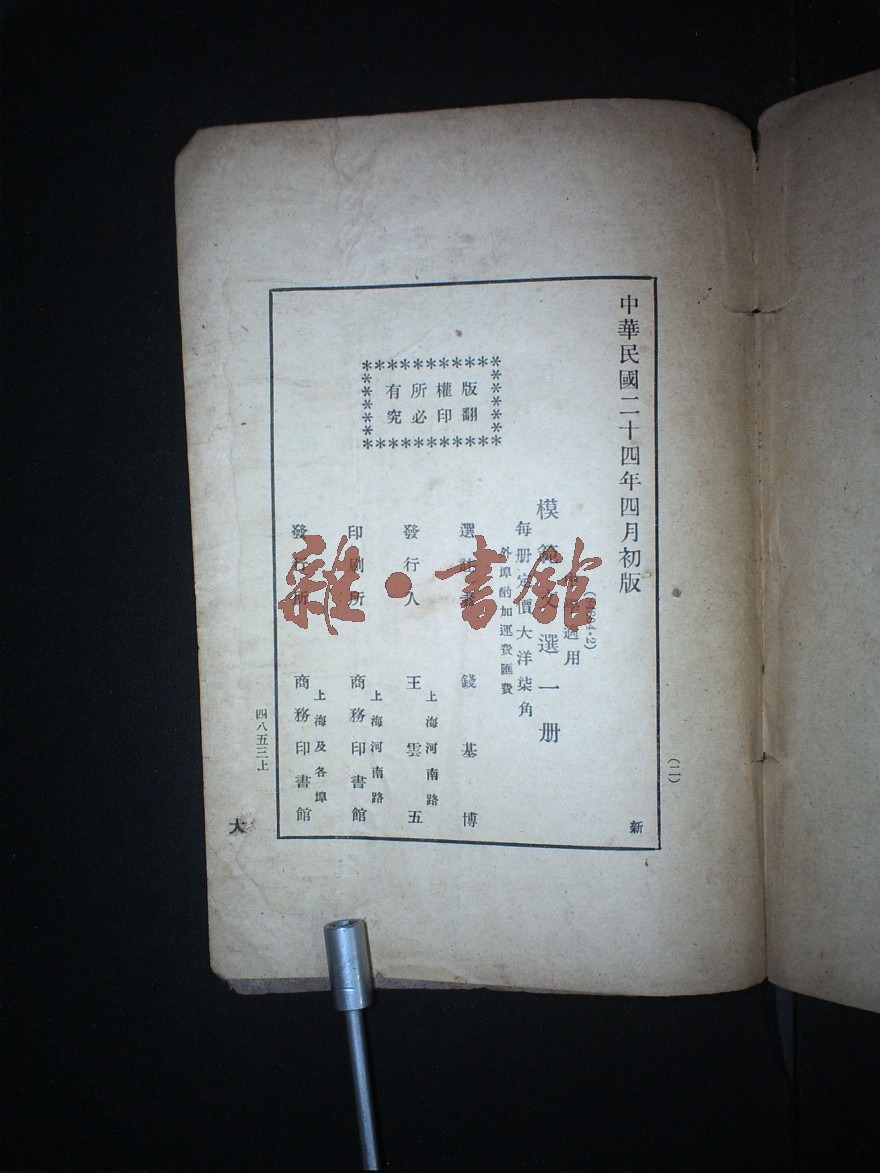 中華民國二十四年四月初版
(二)
新
適用
模範文選一册
每册定價大洋柒角
外埠酌加運費匯費
版權所有
翻印必究
選 錢基博
發行人 王雲五
上海河南路
印刷所 商務印書館
上海河南路
發行所 商務印書館
上海及各埠
四八五三上
大
雜·書館